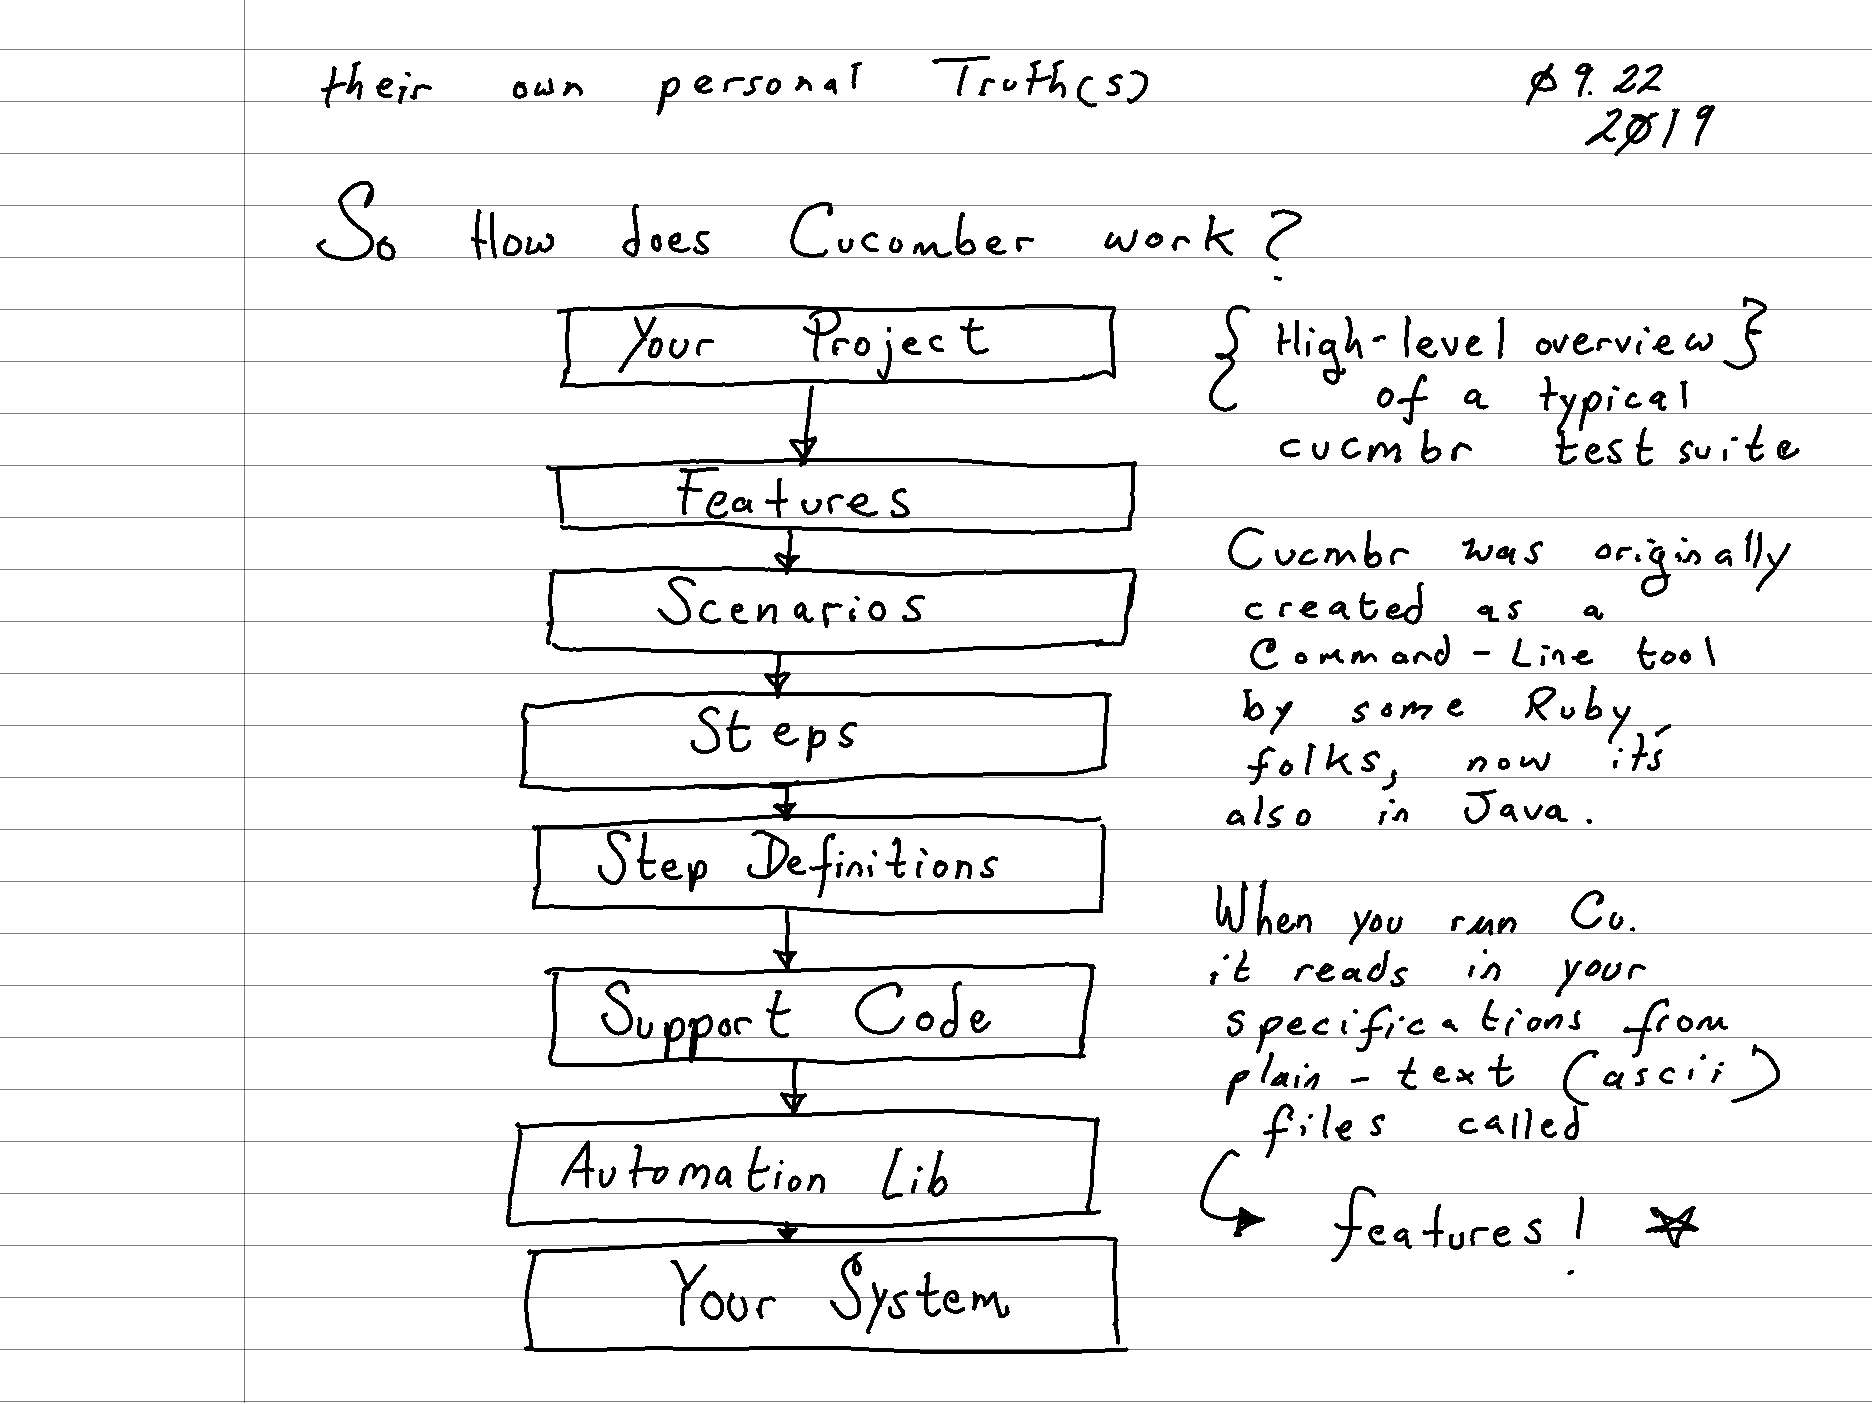 their own personal Truth(s)
Ø9.22
2Ø19
So How does Cucumber work?
Your Project
Features
Scenarios
Steps
Step Definitions
Support Code
Automation Lib
Your System
{ High-level overview }
of a typical
cucmbr test suite
Cucmbr was originally
created as a
Command-Line tool
by some Ruby
folks, now it's
also in Java.
When you run Cu.
it reads in your
specifications from
plain-text (ascii)
files called
features!